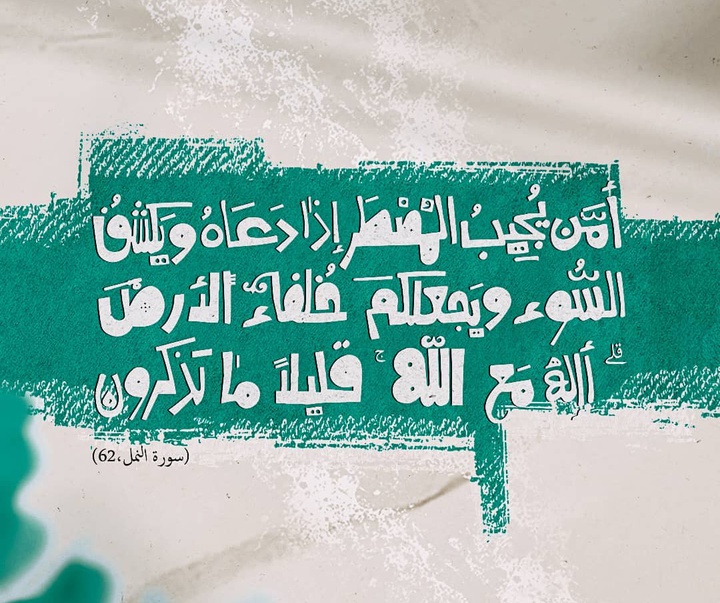 أَمَّن يُجِيبُ الْمُضْطَرَّ إِذَا دَعَاهُ وَيَكْشِفُ
السُّوءَ وَيَجْعَلُكُمْ خُلَفَاءَ الْأَرْضِ
قلے أَإِلَٰهٌ مَّعَ اللَّهِ ج قَلِيلًا مَّا تَذَكَّرُونَ
(سورة النمل،62)